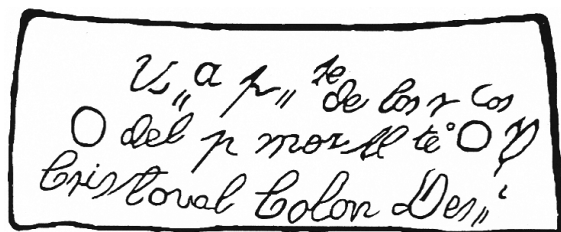 U„ a p„ te de los r tos
del p mer Al te° D
Cristoval Colon Des„ r